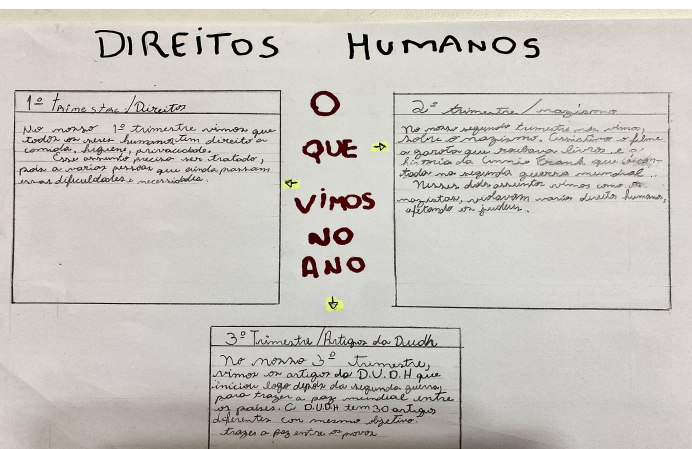 DIREITOS HUMANOS
1º trimestre/Direitos
No nosso 1º trimestre vimos que
todos os seres humanos tem direito a
comida, higiene, privacidade.
Esse assunto precisa ser tratado,
pois a varias pessoas que ainda passam
essas dificuldades e necessidades.
O
QUE
VIMOS
NO
ANO
2º trimestre/nazismo
No nosso segundo trimestre nos vimos,
sobre o nazismo. Assistimos o filme
a garota que roubava livros, e a
historia da Frank que
tada na segunda guerra mundial.
Nesses dois assuntos vimos como os
nazistas, violavam varios direitos humanos,
afetando os judeus.
3º Trimestre/Artigos da Dudh
No nosso 3º trimestre,
vimos os artigos da D.U.D.H que
iniciou logo depois da segunda guerra,
para trazer a paz mundial entre
os países. A D.U.D.H tem 30 artigos
diferentes com mesmo objetivo.
trazer a paz entre os povos